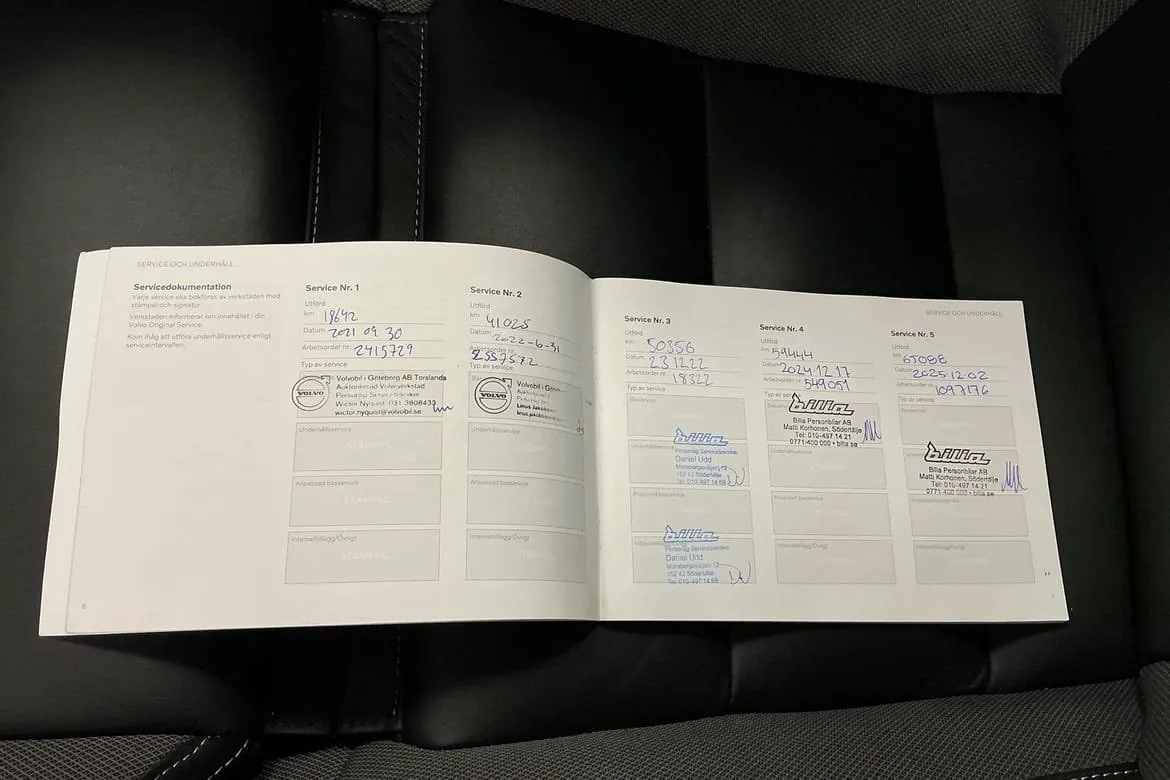 SERVICE OCH UNDERHÅLL
Servicedokumentation
Varje service ska bokföras av verkstaden med
stämpel och signatur.
Verkstaden informerar om innehållet i din
Volvo Original Service.
Kom ihåg att utföra underhållsservice enligt
serviceintervallen.
6
Service Nr. 1
Utförd
km 18642
Datum 2021 09 30
Arbetsorder nr 2415729
Typ av service
VOLVO
Volvobil i Göteborg AB Torslanda
Auktoriserad Volvoverkstad
Personlig Servicetekniker
Wictor Nyquist 031 3808433
wictor.nyquist@volvobil.se
Underhållsservice
Anpassad basservice
STÄMPEL
Intervalltillägg/Övrigt
STÄMPEL
Service Nr. 2
Utförd
km 41025
Datum 2022-6-31
Arbetsorder nr 2557572
Typ av service
VOLVO
Volvobil i
Linus
Underhållsservice
Anpassad basservice
Intervalltillägg/Övrigt
SERVICE OCH UNDERHÅLL
Service Nr. 3
Utförd
km 50356
Datum 231222
Arbetsorder nr 18322
Typ av service
Basservice
bilia
Personlig Servicetekniker
Daniel Udd
Morabergsvägen 12
152 42 Södertälje
Tel: 010-497 14 69
Anpassad basservice
bilia
Personlig Servicetekniker
Daniel Udd
Morabergsvägen 12
152 42 Södertälje
Tel: 010-497 14 69
Service Nr. 4
Utförd
km 59444
Datum 2024-12-17
Arbetsorder nr 549051
Typ av service
bilia
Bilia Personbilar AB
Matti Korhonen, Södertälje
Tel: 010-497 14 21
0771-400 000 • bilia.se
Underhållsservice
Anpassad basservice
Intervalltillägg/Övrigt
Service Nr. 5
Utförd
km 65086
Datum 2025-12-02
Arbetsorder nr 1097176
Typ av service
Basservice
bilia
Bilia Personbilar AB
Matti Korhonen, Södertälje
Tel: 010-497 14 21
0771-400 000 • bilia.se
Anpassad basservice
Intervalltillägg/Övrigt
7